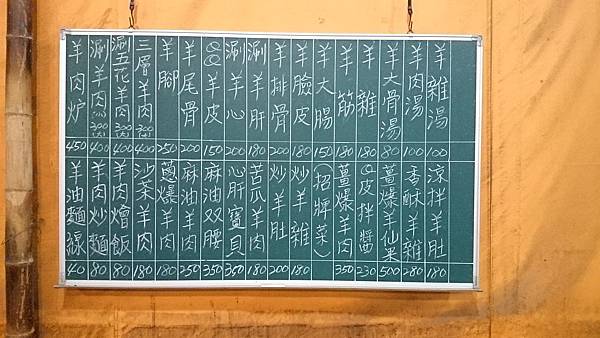 羊雜湯 100
羊肉湯 100
羊大骨湯 80
羊雜 180
羊筋 180
羊大腸 150
羊臉皮 180
羊排骨 200
涮羊肝 180
涮羊心 200
QQ羊皮 150
羊尾骨 200
羊腳 250
三層羊肉 400
涮五花羊肉 400
涮羊肉 400
羊肉炉 450
涼拌羊肚 180
香酥羊雜 280
薑爆羊仙果 500
Q皮拌醬 230
薑爆羊肉 350
(招牌菜)
炒羊雜 180
炒羊肚 200
苦瓜羊肉 180
心肝寶貝 350
麻油双腰 350
麻油羊肉 250
蔥爆羊肉 180
沙茶羊肉 180
羊肉燴飯 80
羊肉炒麵 80
羊油麵線 40